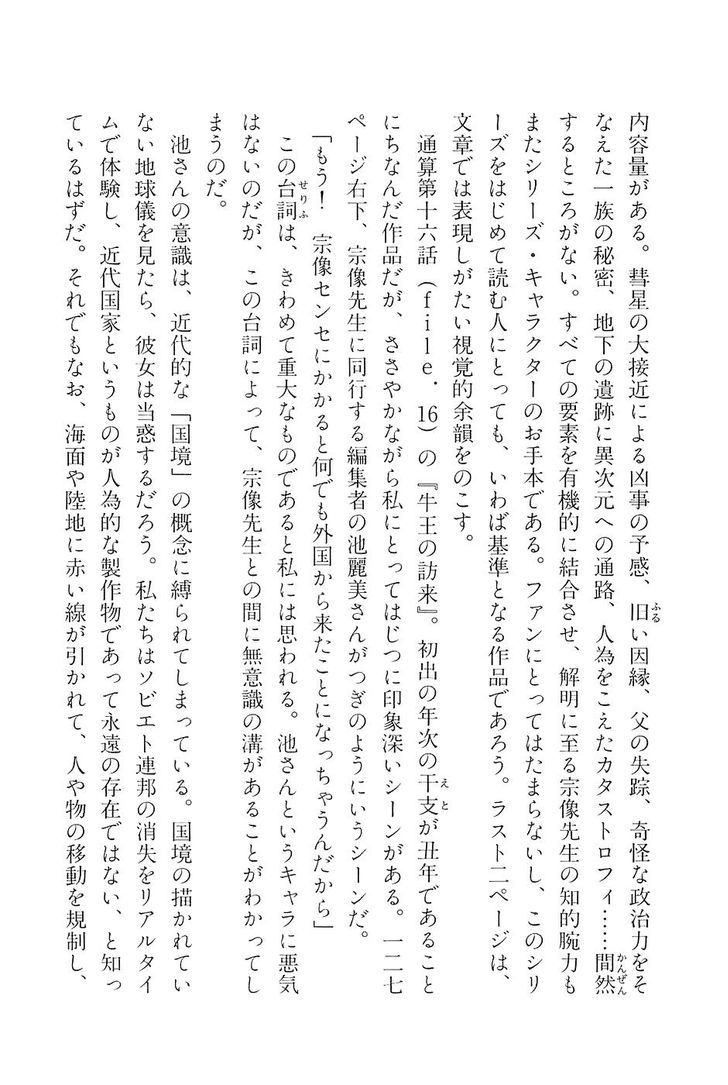 内容量がある。彗星の大接近による凶事の予感、旧い因縁、父の失踪、奇怪な政治力をそ
なえた一族の秘密、地下の遺跡に異次元への通路、人為をこえたカタストロフィ……間然
するところがない。すべての要素を有機的に結合させ、解明に至る宗像先生の知的腕力も
またシリーズ・キャラクターのお手本である。ファンにとってはたまらないし、このシリ
ーズをはじめて読む人にとっても、いわば基準となる作品であろう。ラスト二ページは、
文章では表現しがたい視覚的余韻をのこす。
通算第十六話（file．16）の『牛王の訪来』。初出の年次の干支が丑年であること
にちなんだ作品だが、ささやかながら私にとってはじつに印象深いシーンがある。一二七
ページ右下、宗像先生に同行する編集者の池麗美さんがつぎのようにいうシーンだ。
「もう！　宗像センセにかかると何でも外国から来たことになっちゃうんだから」
この台詞は、きわめて重大なものであると私には思われる。池さんというキャラに悪気
はないのだが、この台詞によって、宗像先生との間に無意識の溝があることがわかってし
まうのだ。
池さんの意識は、近代的な「国境」の概念に縛られてしまっている。国境の描かれてい
ない地球儀を見たら、彼女は当惑するだろう。私たちはソビエト連邦の消失をリアルタイ
ムで体験し、近代国家というものが人為的な製作物であって永遠の存在ではない、と知っ
ているはずだ。それでもなお、海面や陸地に赤い線が引かれて、人や物の移動を規制し、
ふる
かんぜん
えと
せりふ